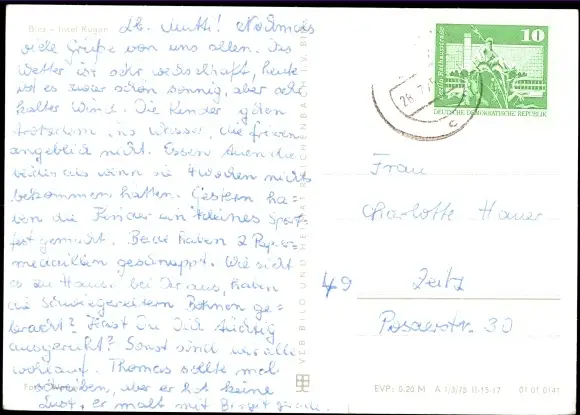 Binz - Insel Rügen
Lb. Mutti! Nochmals
viele Grüße von uns allen. Das
Wetter ist sehr wechselhaft, heute
ist es zwar schön sonnig, aber sehr
kalter Wind. Die Kinder gehen
trotzdem ins Wasser, die frieren
angeblich nicht. Essen tuen die
beiden als wenn sie 4 Wochen nichts
bekommen hätten. Gestern ha-
ben die Kinder ein kleines Sport-
fest gemacht. Beide haben 2 Papier-
medaillen geschnappt. Wie sieht
es zu Hause bei Dir aus, haben
die Schwiegereltern Bohnen ge-
bracht? Hast Du Dich tüchtig
ausgeruht? Sonst sind wir alle
wohlauf. Thomas sollte mal
schreiben, aber er hat keine
Lust, er malt mit
VEB BILD UND HEIMAT REICHENBACH I. V.
10
Berlin, Rathausstraße
DEUTSCHE DEMOKRATISCHE REPUBLIK
28.7.7
c
Frau
Charlotte Hauer
49 Zeitz
Posaerstr. 30
EVP: 0,20 M A 1/3/75 II-13-17 01 01 0141